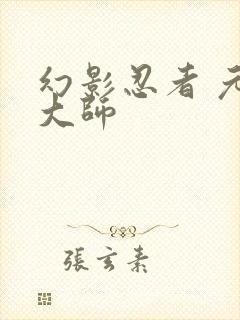 幻影忍者 元
大師
張玄素